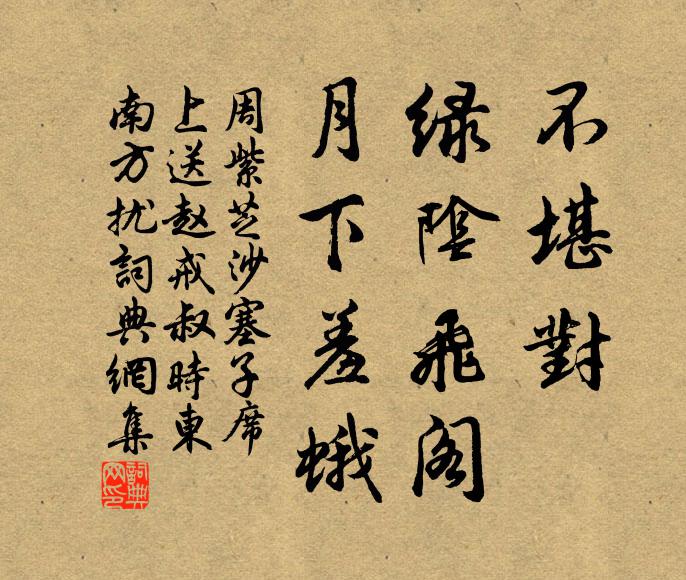 不堪對
绿陰飛阁
月下羞蛾
周紫芝沙塞子席
上送赵戒叔時東
南方扰詞典網集
詞典网印